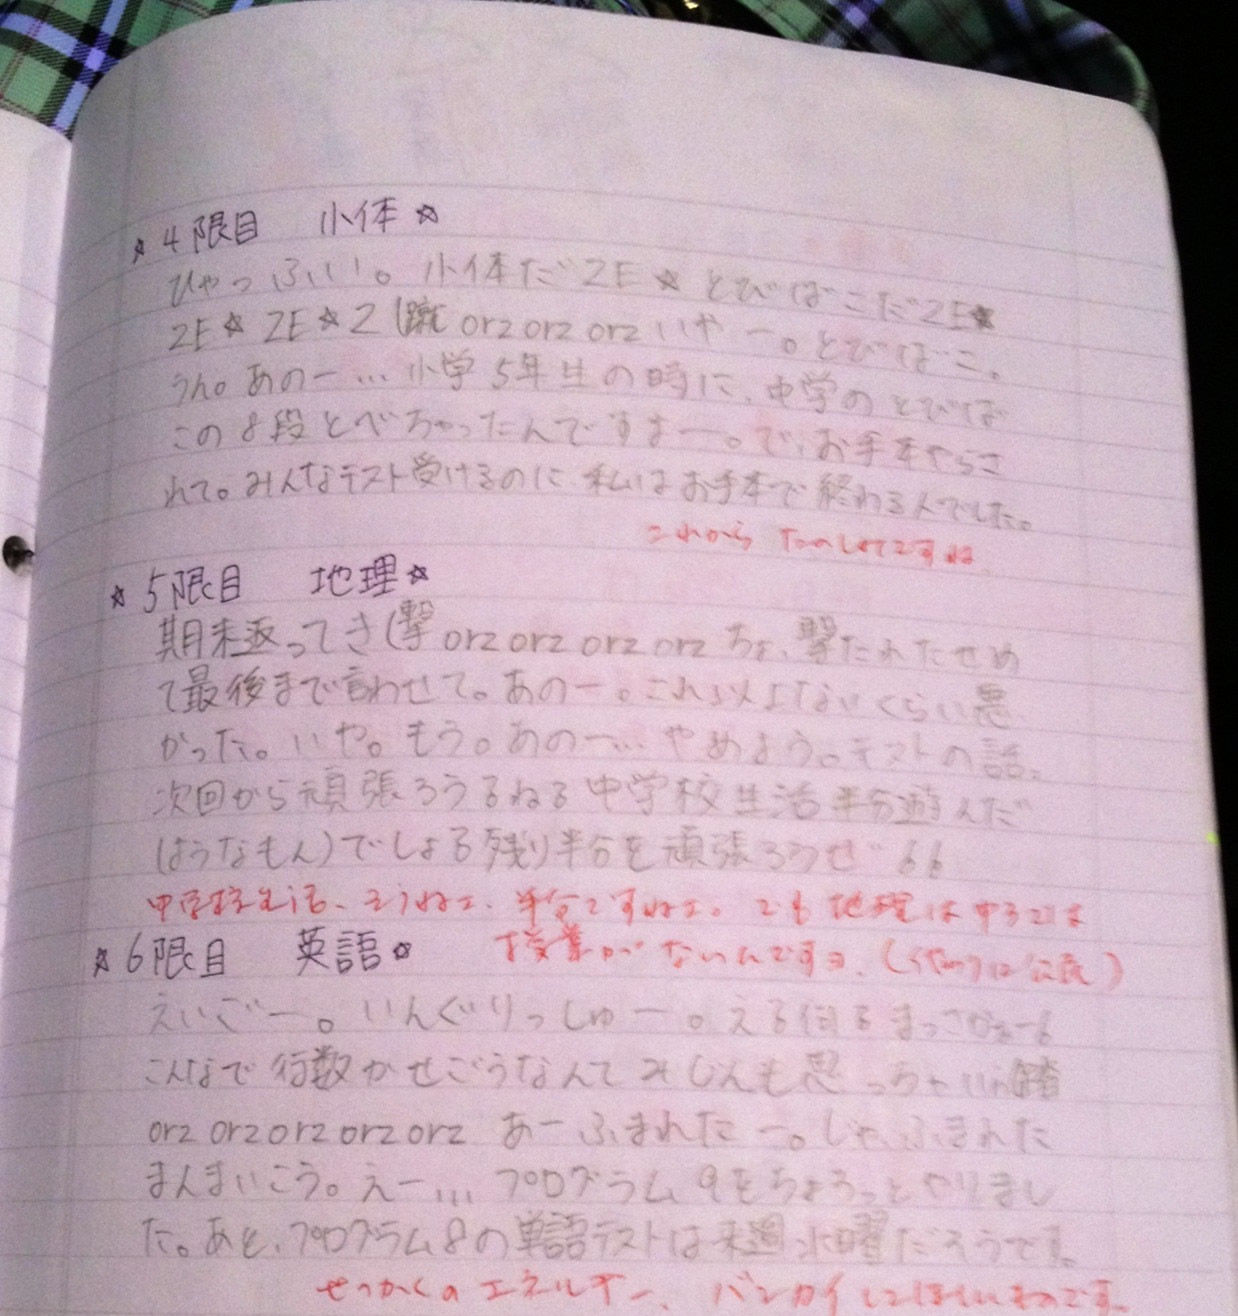 ☆4限目 小体☆
ひゃっふぃい。小体だZE☆とびばこだZE☆
ZE☆ZE☆Z(蹴 orz orz orz いやー。とびばこ。
うん。あのー…小学5年生の時に、中学のとびば
この8段とべちゃったんですよー。で、お手本やらさ
れて。みんなテスト受けるのに私はお手本で終わる人でした。
これから たのしみですね
☆5限目 地理☆
期末返ってき(撃 orz orz orz orz ちょ、撃たれたせめ
て最後まで言わせて。あのー。これ以上ないくらい悪
かった。いや。もう。あのー…やめよう。テストの話。
次回から頑張ろうるねる中学校生活半分遊んだ
(ようなもん)でしょる残り半分を頑張ろうぜ66
中学校生活、そうねェ、半分ですねェ。でも地理は中3では
授業がないんですョ、(代わりに公民)
☆6限目 英語☆
えいごー。いんぐりっしゅー。える
こんなで行数かせごうなんてみじんも思っちゃいn(踏
orz orz orz orz orz あーふまれたー。じゃ、ふまれた
まんまいこう。えー… プログラム9をちょろっとやりまし
た。あと、プログラム8の単語テストは来週水曜だそうです。
せっかくのエネルギー、バンカイしてほしいものです